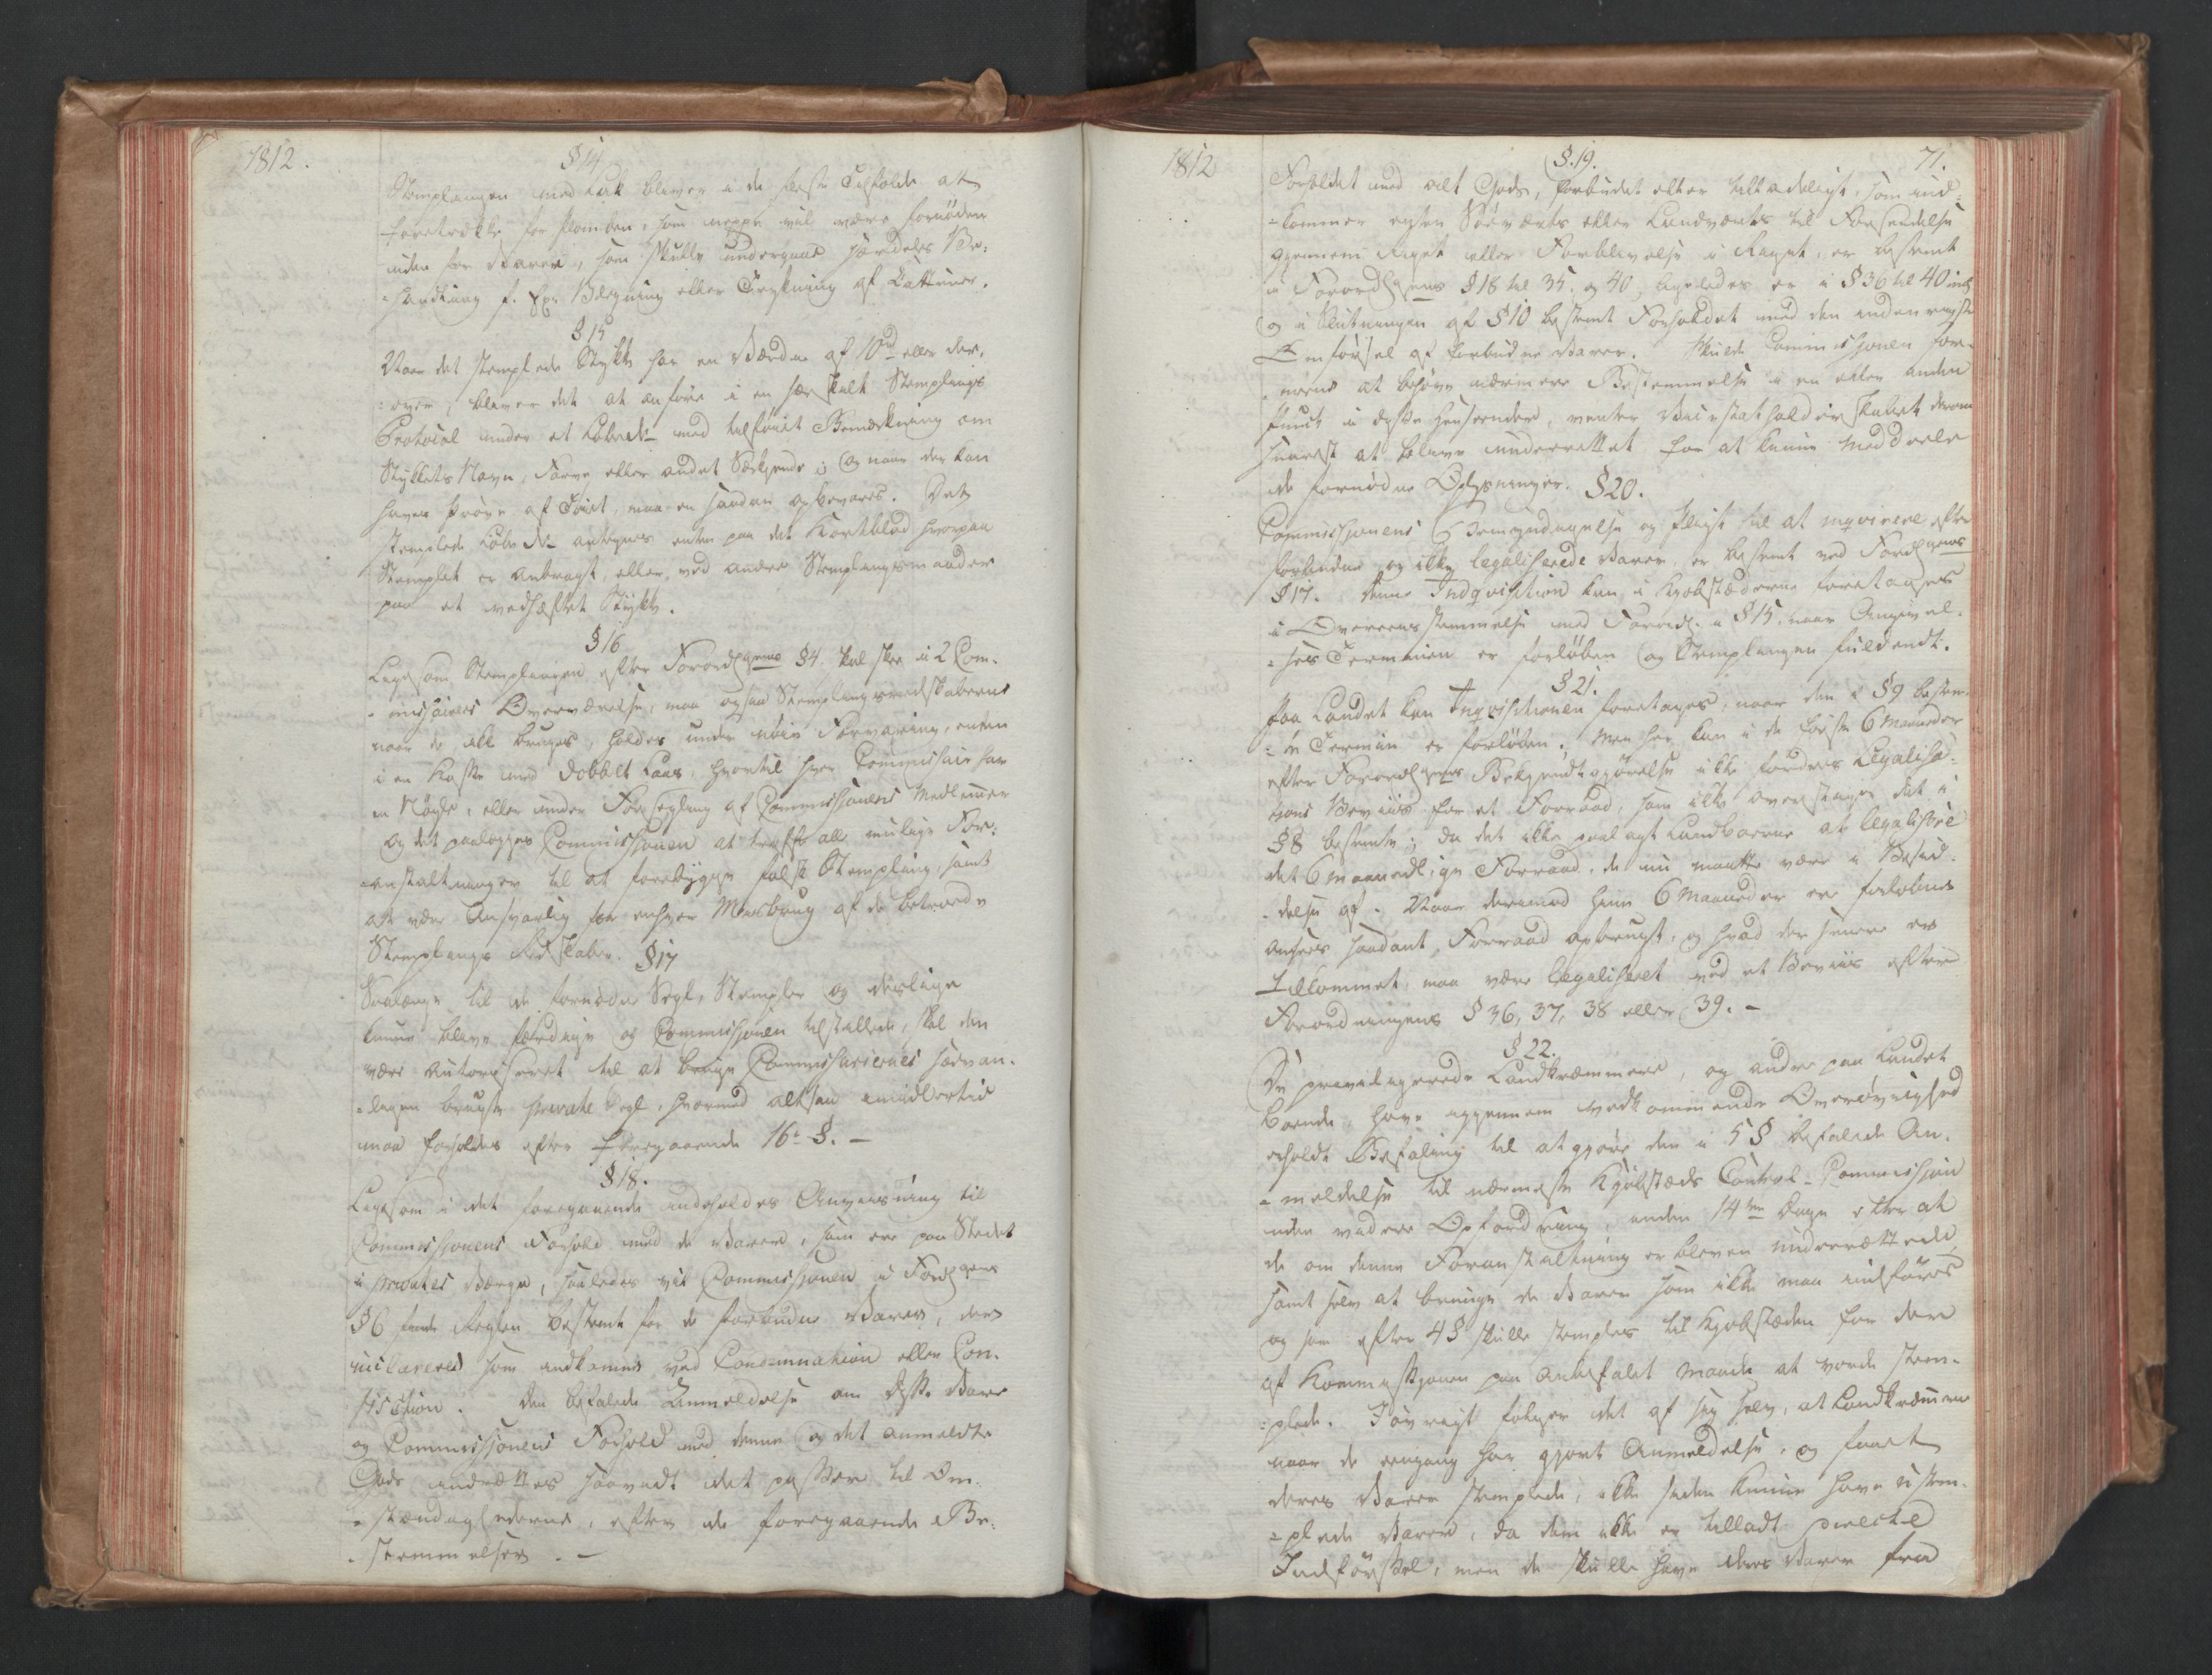 1812.
§ 14
Stemplingen med Lak bliver i de fleste Tilfælde at
foretrække for Plomben, som neppe vil være fornöden
uden for Varer, som skulle undergaae særdeles Be-
-handling f. Ex. Blegning eller Trykning af Cattuner.
§ 15
Naar det stemplede Stykke har en Værdie af 10 rd eller der-
-over, bliver det at anföre i en særskilt Stemplings
Protocol under et Löbe No med tilföiet Bemærkning om
Stykkets Navn, Farve eller andet Særkjende; og naar der kan
haves Pröve af Töiet, maa en saadan opbevares. Det
stemplede Löbe No antegnes enten paa det Kortblad hvorpaa
Stemplet er anbragt, eller ved andre Stemplingsmaader
paa et vedhæftet Stykke.
§ 16
Ligesom Stemplingen efter Forordgens § 4 skal skee i 2 Com-
-missairers Overværelse, maa ogsaa Stemplingsredskaberne
naar de ikke bruges, holdes under nöie Forvaring, enten
i en Kasse med dobbelt Laas, hvortil hver Commissair har
en Nögle, eller under Forsegling af Commissionens Medlemmer
og det paalægges Commissionen at træffe alle mulige For-
-anstaltninger til at forebygge falsk Stempling, samt
at være Ansvarlig for enhver Misbrug af de betroede
Stemplings Redskaber.
§ 17
Saalænge til de fornödne Segl, Stempler og deslige
kunne blive færdige og Commissionen tilstillede, skal den
være autoriseret til at bruge Commissariernes sædvan-
-ligen brugte private Segl, hvormed altsaa imidlertid
maa forholdes efter foregaaende 16de §. -
§ 18.
Ligesom i det foregaaende indeholdes Anviisning til
Commissionens Forhold med de Varer, som ere paa Stedet
i privates Værge, saaledes vil Commissionen i Fordgens
§ 6 finde Reglen bestemt for de forbudne Varer, der
som indkomme ved Condemnation eller Con-
fiscation. Den befalede Anmeldelse om disse Varer
og Commissionens Forhold med denne og det anmeldte
Gods indrettes saavidt det passer til Om-
-stændighederne, efter de foregaaende Be-
-stemmelser. -
1812
§. 19.
71.
Forholdet med alt Gods, forbudet eller tilladeligt, som ind-
-kommer enten Söeværts eller Landværts til Forsendelse
gjennem Riget eller Forblivelse i Riget, er bestemt
i Forordgens § 18 til 35. og 40; ligeledes er i § 36 til 40 incl
og i Slutningen af § 10 bestemt Forholdet med den indenrigske
Omförsel af forbudne Varer. Skulde Commissionen for-
-meene at behöve nærmere Bestemmelse i en eller anden
Punct i disse Henseender, venter Vicestatholderskabet derom
snarest at blive underrettet for at kunne meddeele
de fornödne Oplysninger.
§ 20.
Commissionens Bemyndigelse og Pligt til at inqvirere efter
forbudne og ikke legaliserede Varer, er bestemt ved Fordgens
§ 17. Denne Indqvisition kan i Kjöbstæderne foretages
i Overeensstemmelse med Forordg. § 15, naar Angivel-
-ses Terminen er forlöben og Stemplingen fuldendt.
§ 21.
Paa Landet kan Inqvisitionen foretages, naar den i § 9 bestem-
-te Termin er forlöben. Men her kan i de förste 6 Maaneder
efter Forordgens Bekjendtgjörelse ikke fordres Legalisa-
tions Beviis for et Forraad, som ikke overstiger det i
§ 8 bestemte; da det ikke paalagt Landboerne at legalisere
det 6 maanedlige Forraad, de nu maatte være i Besid-
-delse af. Naar derimod hine 6 Maaneder ere forlöbne
ansees saadant Forraad opbrugt, og hvad der senere er
tilkommet, maa være legaliseret ved et Beviis efter
Forordningens § 36, 37, 38 eller 39. -
§ 22.
De privilegerede Landkræmmere, og andre paa Landet
boende, have igjennem vedkommende Overövrighed
erholdt Befaling til at gjöre den i 5 § befalede An-
-meldelse til nærmeste Kjöbstæds Control-Commission
uden videre Opfordring, inden 14ten Dage efter at
de om denne Foranstaltning er bleven underrettede,
samt selv at bringe de Varer som ikke maa indföres
og som efter 4 § skulle stemples til Kjöbstæden for der
af Kommissionen paa anbefalet Maade at vorde stem-
-plede. Iövrigt fölger det af sig selv, at Landkræmmere
naar de eengang har gjort Anmeldelse, og faaet
deres Varer stemplede, ikke siden kunne have ustem-
-plede Varer, da dem ikke er tilladt directe
Indförsel, men de skulle have deres Varer fra